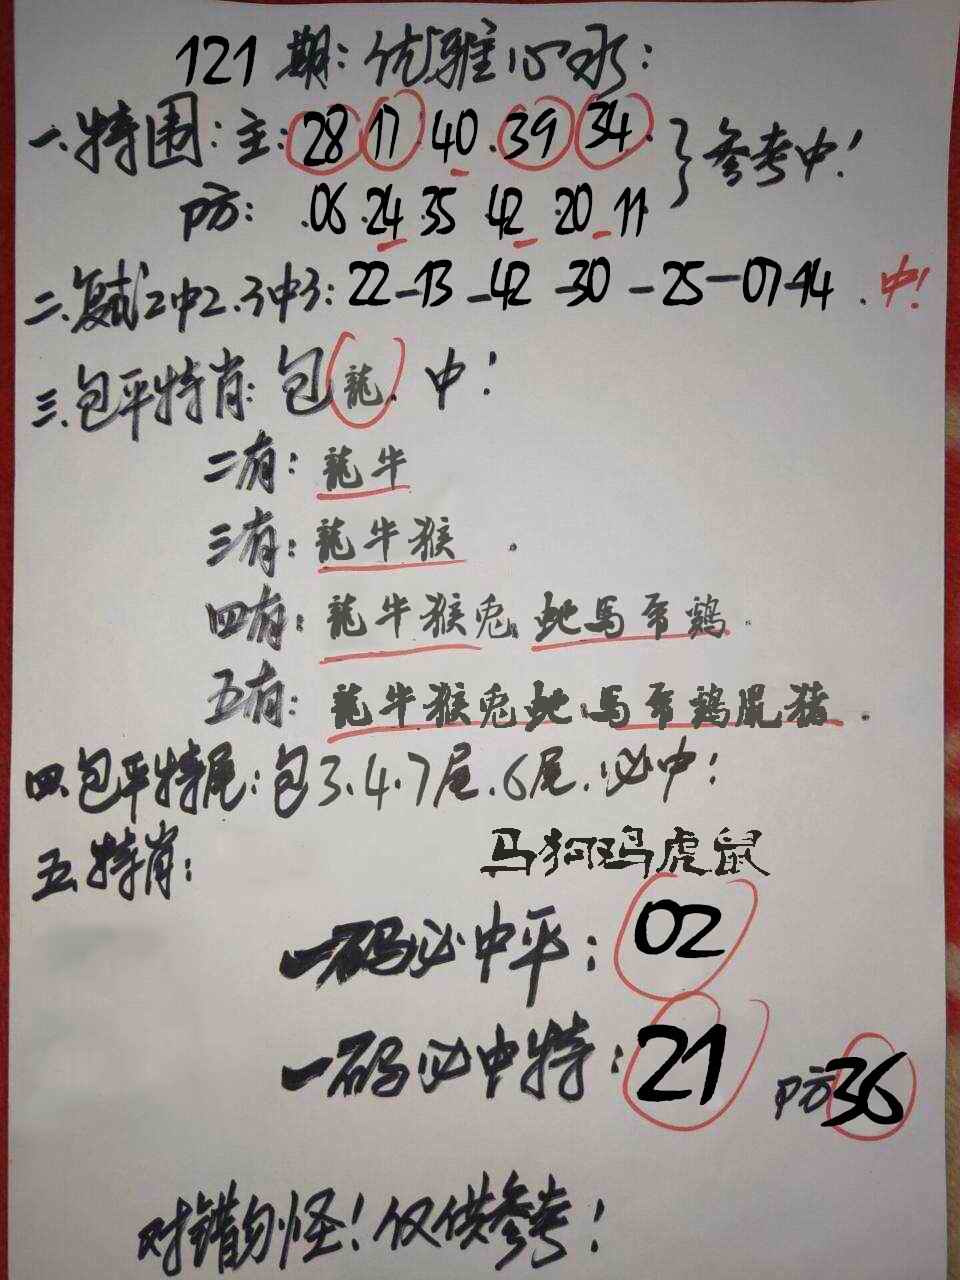 121期:优雅心水:
一.特围:主:28.17.40.39.34.
防: .06.24.35 42.20.11
参考中!
二.复式2中2.3中3:22-13-42-30-25-07-14.中!
三.包平特肖:包龍.中!
二有:龍牛
三有:龍牛猴.
四有:龍牛猴兎.蛇馬羊鶏.
五有:龍牛猴兎蛇馬羊鶏鼠猪.
四.包平特尾:包3.4.7尾.6尾.必中!
五.特肖:
马狗鸡虎鼠
一码必中平:02
一码必中特:21 防36
对错勿怪!仅供参考!